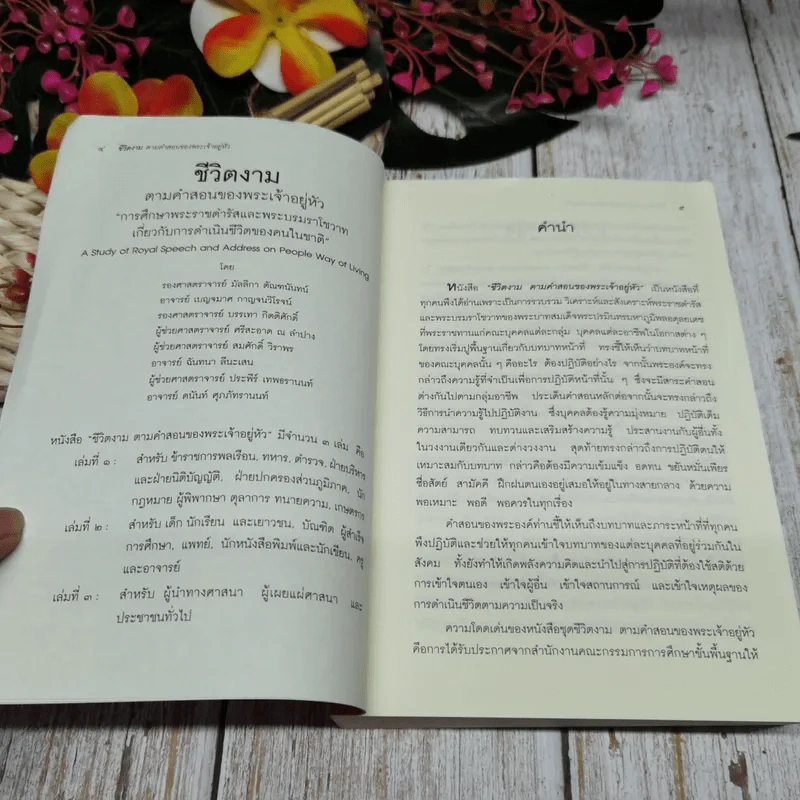 ๔ ชีวิตงาม ตามคำสอนของพระเจ้าอยู่หัว
ชีวิตงาม
ตามคำสอนของพระเจ้าอยู่หัว
"การศึกษาพระราชดำรัสและพระบรมราโชวาท
เกี่ยวกับการดำเนินชีวิตของคนในชาติ"
A Study of Royal Speech and Address on People Way of Living
โดย
รองศาสตราจารย์ มัลลิกา คัณนานันท์
อาจารย์ เบญจมาศ กาญจนวิโรจน์
รองศาสตราจารย์ บรรเทา กิตติศักดิ์
ผู้ช่วยศาสตราจารย์ ศรีสะอาด ณ ลำปาง
ผู้ช่วยศาสตราจารย์ สมศักดิ์ วิราพร
อาจารย์ ฉันทนา ลีนะเสน
ผู้ช่วยศาสตราจารย์ ประพีร์ เทพธรานนท์
อาจารย์ ดนันท์ ศุภภัทรานนท์
หนังสือ "ชีวิตงาม ตามคำสอนของพระเจ้าอยู่หัว" มีจำนวน ๓ เล่ม คือ
เล่มที่ ๑ : สำหรับ ข้าราชการพลเรือน, ทหาร, ตำรวจ, ฝ่ายบริหาร
และฝ่ายนิติบัญญัติ, ฝ่ายปกครองส่วนภูมิภาค, นัก
กฎหมาย ผู้พิพากษา ตุลาการ ทนายความ, เกษตรกร
เล่มที่ ๒ : สำหรับ เด็ก นักเรียน และเยาวชน, บัณฑิต ผู้สำเร็จ
การศึกษา, แพทย์, นักหนังสือพิมพ์และนักเขียน, ครู
และอาจารย์
เล่มที่ ๓ : สำหรับ ผู้นำทางศาสนา ผู้เผยแผ่ศาสนา และ
ประชาชนทั่วไป
๕
คำนำ
หนังสือ "ชีวิตงาม ตามคำสอนของพระเจ้าอยู่หัว" เป็นหนังสือที่
ทุกคนพึงได้อ่านเพราะเป็นการรวบรวม วิเคราะห์และสังเคราะห์พระราชดำรัส
และพระบรมราโชวาทของพระบาทสมเด็จพระปรมินทรมหาภูมิพลอดุลยเดช
ที่พระราชทานแก่คณะบุคคลแต่ละกลุ่ม บุคคลแต่ละอาชีพในโอกาสต่าง ๆ
โดยทรงเริ่มปูพื้นฐานเกี่ยวกับบทบาทหน้าที่ ทรงชี้ให้เห็นว่าบทบาทหน้าที่
ของคณะบุคคลนั้น ๆ คืออะไร ต้องปฏิบัติอย่างไร จากนั้นพระองค์จะทรง
กล่าวถึงความรู้ที่จำเป็นเพื่อการปฏิบัติหน้าที่นั้น ๆ ซึ่งจะมีสาระคำสอน
ต่างกันไปตามกลุ่มอาชีพ ประเด็นคำสอนหลักต่อจากนั้นจะทรงกล่าวถึง
วิธีการนำความรู้ไปปฏิบัติงาน ซึ่งบุคคลต้องรู้ความมุ่งหมาย ปฏิบัติเต็ม
ความสามารถ ทบทวนและเสริมสร้างความรู้ ประสานงานกับผู้อื่นทั้ง
ในวงงานเดียวกันและต่างวงงาน สุดท้ายทรงกล่าวถึงการปฏิบัติตนให้
เหมาะสมกับบทบาท กล่าวคือต้องมีความเข้มแข็ง อดทน ขยันหมั่นเพียร
ซื่อสัตย์ สามัคคี ฝึกฝนตนเองอยู่เสมอให้อยู่ในทางสายกลาง ด้วยความ
พอเหมาะ พอดี พอควรในทุกเรื่อง
คำสอนของพระองค์ท่านชี้ให้เห็นถึงบทบาทและภาระหน้าที่ที่ทุกคน
พึงปฏิบัติและช่วยให้ทุกคนเข้าใจบทบาทของแต่ละบุคคลที่อยู่ร่วมกันใน
สังคม ทั้งยังทำให้เกิดพลังความคิดและนำไปสู่การปฏิบัติที่ต้องใช้สติด้วย
การเข้าใจตนเอง เข้าใจผู้อื่น เข้าใจสถานการณ์ และเข้าใจเหตุผลของ
การดำเนินชีวิตตามความเป็นจริง
ความโดดเด่นของหนังสือชุดชีวิตงาม ตามคำสอนของพระเจ้าอยู่หัว
คือการได้รับประกาศจากสำนักงานคณะกรรมการการศึกษาขั้นพื้นฐานให้